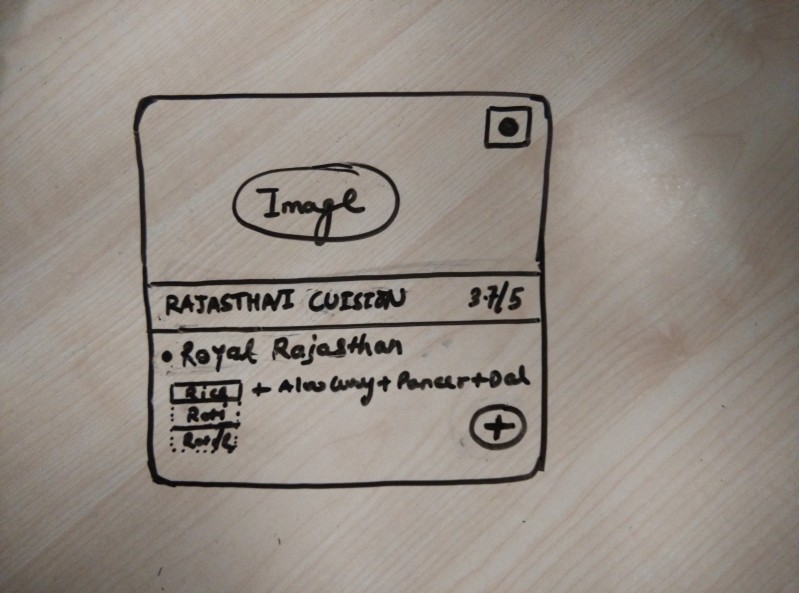 Image
RAJASTHANI CUISION 3.7/5
• Royal Rajasthan
Rice + Aloo Curry + Paneer + Dal
Roti
+